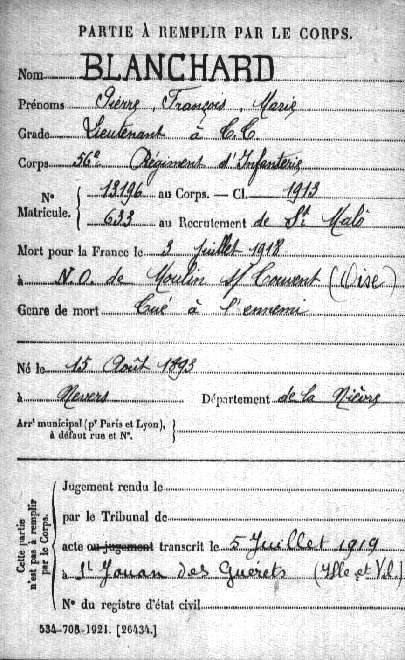 PARTIE À REMPLIR PAR LE CORPS.
Nom BLANCHARD
Prénoms Pierre, François, Marie
Grade Lieutenant à T.T.
Corps 56e Régiment d'Infanterie
N° Matricule. { 13196 au Corps. — Cl. 1913
633 au Recrutement de St Malo
Mort pour la France le 3 Juillet 1918
à N.O. de Moulin s/ Touvent (Oise)
Genre de mort Tué à l'ennemi
Né le 15 Août 1893
à Nevers Département de la Nièvre
Arrt municipal (pr Paris et Lyon), à défaut rue et N°. }
Cette partie n'est pas à remplir par le Corps. {
Jugement rendu le
par le Tribunal de
acte ou jugement transcrit le 5 Juillet 1919
à St Jouan des Guérets (Ille et Vil.)
N° du registre d'état civil
534-708-1921. [26434.]